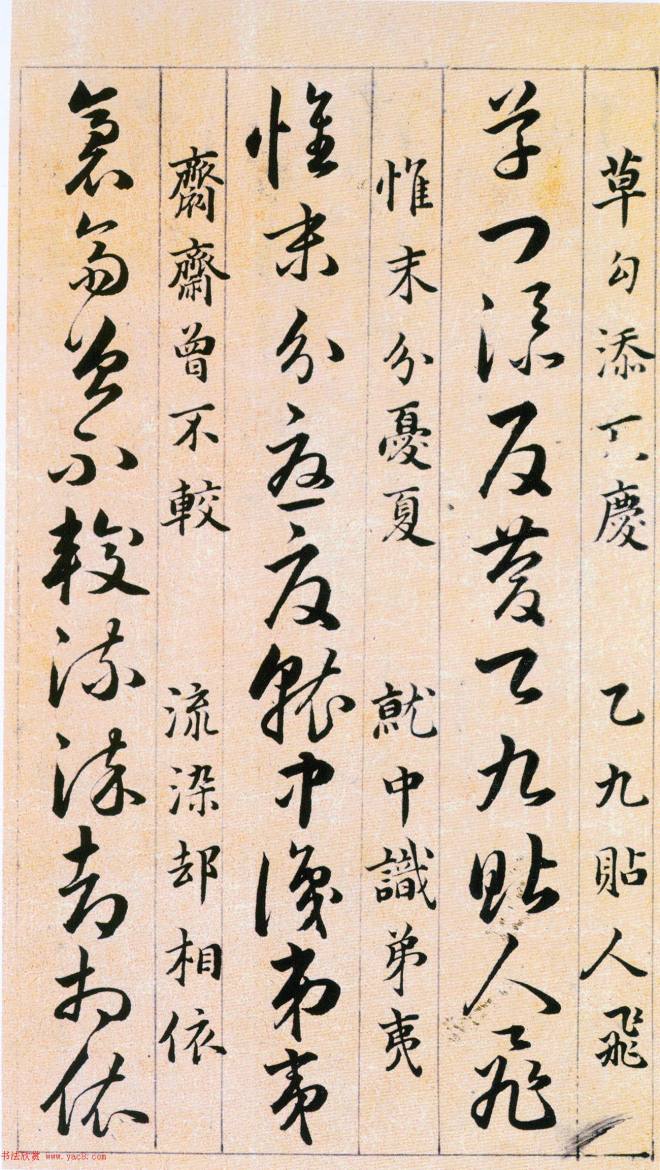 草勾添反慶 乙九貼人飛
草勾添反慶乙九貼人飛
惟末分憂夏 就中識弟夷
惟末分憂夏就中識弟夷
齋齊曾不較 流染却相依
齋齊曾不較流染却相依
书法欣赏 www.yac8.com